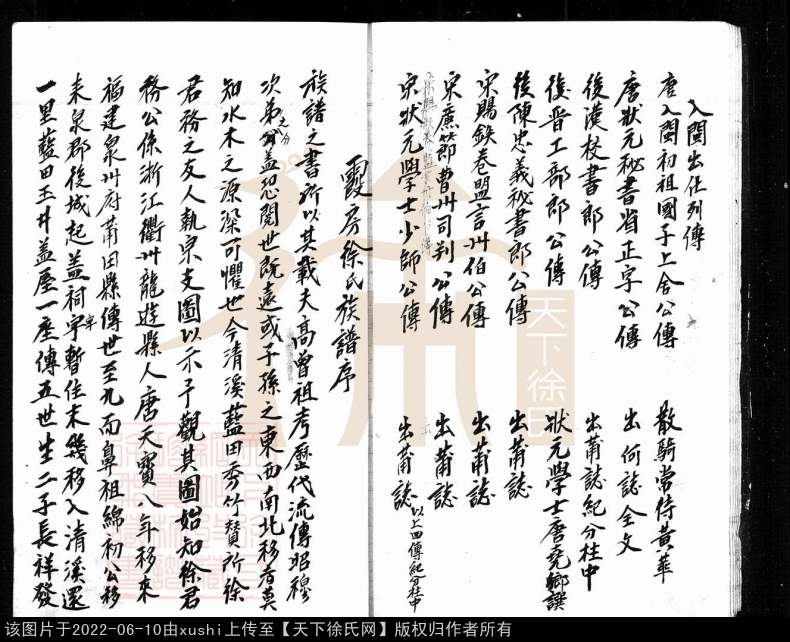 入閩出仕列傳
唐入閩初祖國子上舍公傳 散騎常侍黃華
唐狀元秘書省正字公傳 出何誌全文
後漢校書郎公傳 出莆誌紀分柱中
後晉工部郎公傳 狀元學士唐堯鄉譔
後陳忠義秘書郎公傳 出莆誌
宋賜鉄卷盟言州伯公傳 出莆誌
宋廉節曹州司判公傳 出莆誌
宋狀元學士少師公傳 出莆誌 以上四傳紀分柱中
霞房徐氏族譜序
族譜之書所以其載夫高曾祖考歷代流傳昭穆
次弟之分蓋恐閱世既遠或子孫之東西南北移者莫
知水木之源深可懼世今清溪藍田秀竹贊所徐
君務之友人執宗支圖以示予觀其圖始知徐君
務公係浙江衢州龍遊縣人唐天寶八年移來
福建泉州府莆田縣傳世至九而鼻祖綿初公移
來泉郡後城起蓋祠宇暫住未幾移入清溪還
一里藍田玉井蓋屋一座傳五世生二子長祥發
天下徐氏
该图片于2022-06-10由xushi上传至【天下徐氏网】版权归作者所有